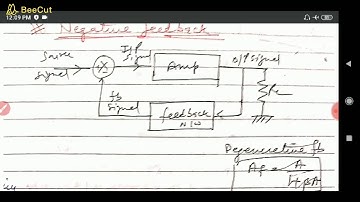 BeeCut
12:09 PM
* Negative feedback
Source
signal
I/P
signal
Amp
O/P signal
RL
fb
signal
feedback
N/W
Degenerative fb
Af = A
1+βA